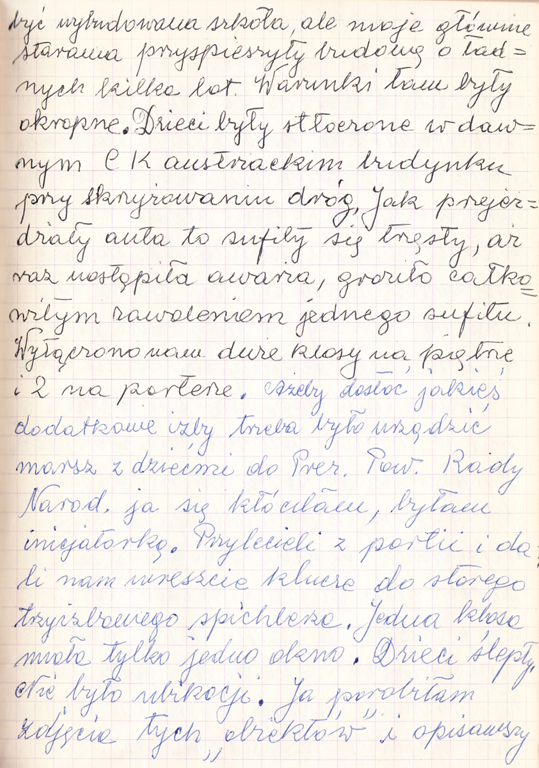 być wybudowana szkoła, ale moje główne
starania przyspieszyły budowę o ład=
nych kilka lat. Warunki tam były
okropne. Dzieci były stłoczone w daw=
nym C K austrackim budynku
przy skrzyżowaniu dróg. Jak przejeż=
dżały auta to sufity się trzęsły, aż
raz nastąpiła awaria, groziło całko=
witym zawaleniem jednego sufitu.
Wyłączono nam duże klasy na piętrze
i 2 na parterze. Ażeby dostać jakieś
dodatkowe izby trzeba było urządzić
marsz z dziećmi do Prez. Pow. Rady
Narod. ja się kłóciłam, byłam
inicjatorką. Przylecieli z partii i da=
li nam wreszcie klucze do starego
trzyizbowego spichlerza. Jedna klasa
miała tylko jedno okno. Dzieci ślepły,
Nie było ubikacji. Ja porobiłam
zdjęcia tych „obiektów" i opisawszy